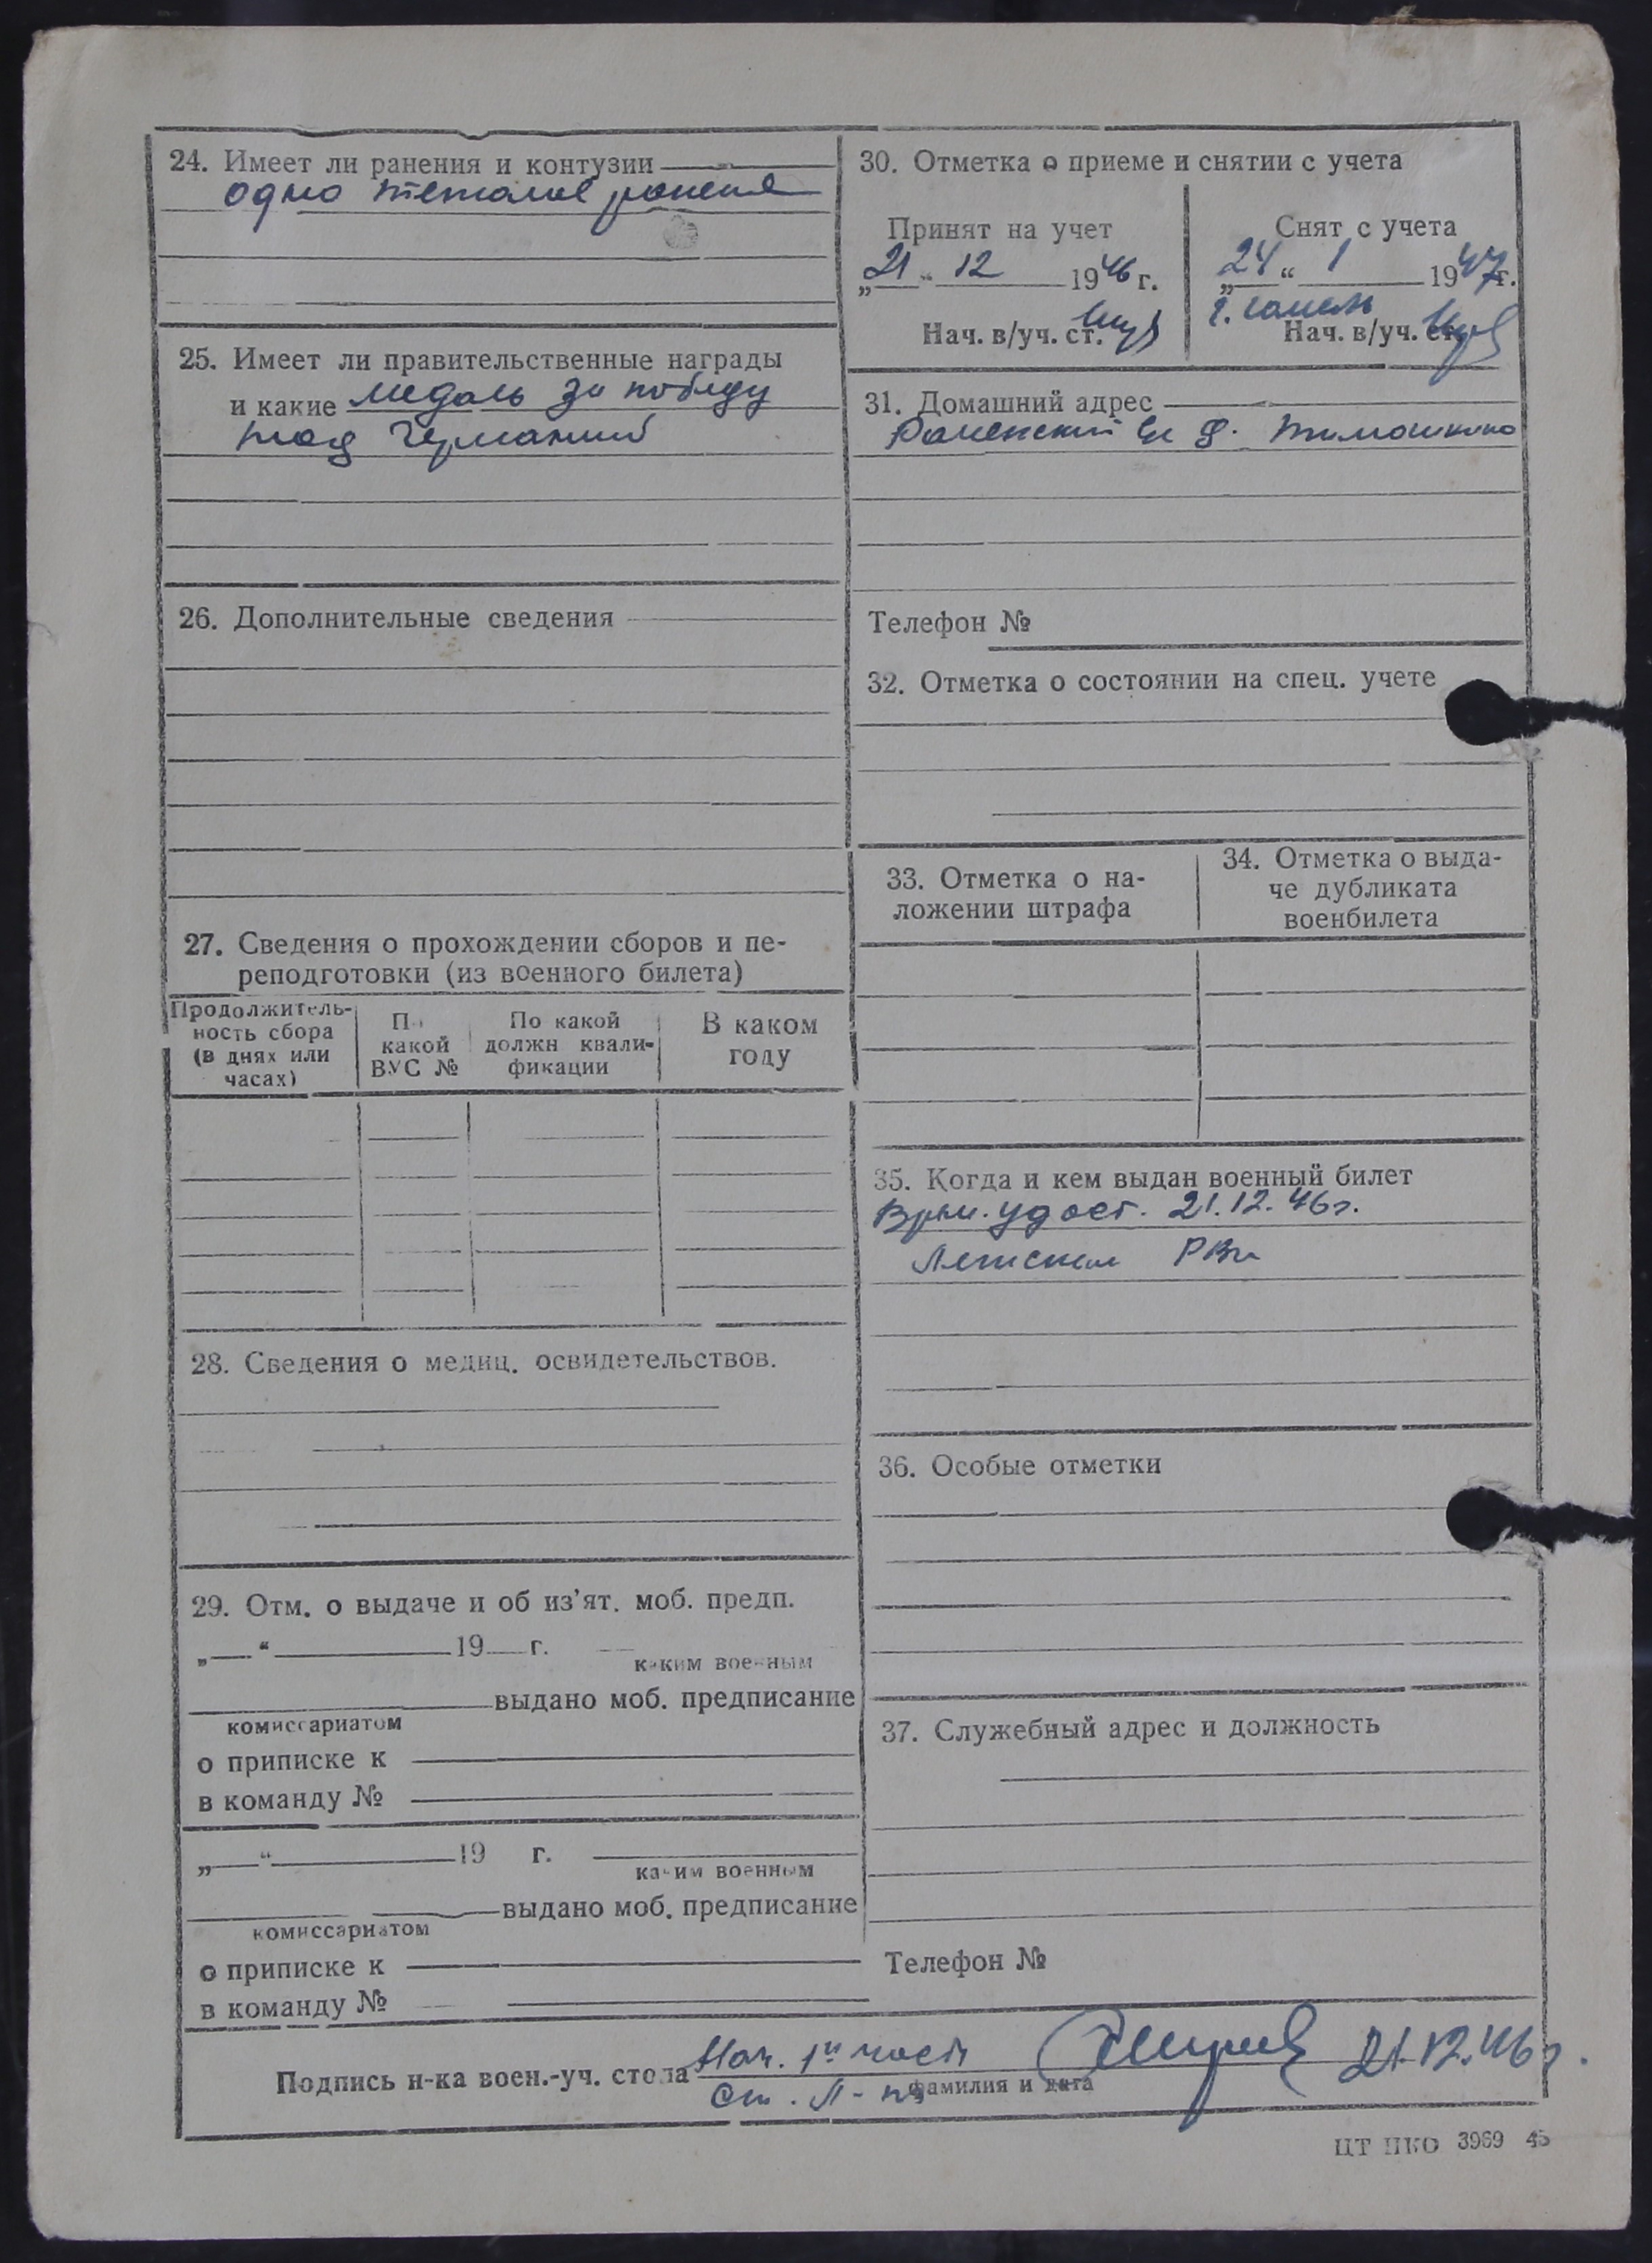 24. Имеет ли ранения и контузии
одно тяжолое ранение
25. Имеет ли правительственные награды
и какие медаль за победу
над Германий
26. Дополнительные сведения
27. Сведения о прохождении сборов и пе-
реподготовки (из военного билета)
Продолжитель-
ность сбора
(в днях или
часах)
По
какой
ВУС №
По какой
должн квали-
фикации
В каком
году
28. Сведения о медиц. освидетельствов.
29. Отм. о выдаче и об из'ят. моб. предп.
„ “ 19 г.
каким военным
выдано моб. предписание
комиссариатом
о приписке к
в команду №
„ “ 19 г.
каким военным
выдано моб. предписание
комиссариатом
о приписке к
в команду №
30. Отметка о приеме и снятии с учета
Принят на учет
„21“ 12 1946 г.
Нач. в/уч. ст.
Снят с учета
„24“ 1 1947 г.
г.
Нач. в/уч. ст.
31. Домашний адрес
д. Тимошкино
Телефон №
32. Отметка о состоянии на спец. учете
33. Отметка о на-
ложении штрафа
34. Отметка о выда-
че дубликата
военбилета
35. Когда и кем выдан военный билет
Врем. удост. 21.12.46г.
РВК
36. Особые отметки
37. Служебный адрес и должность
Телефон №
Подпись н-ка воен.-уч. стола Нач. 1й части 21.12.46г.
Ст. Л-нт фамилия и дата
ЦТ НКО 3969 45